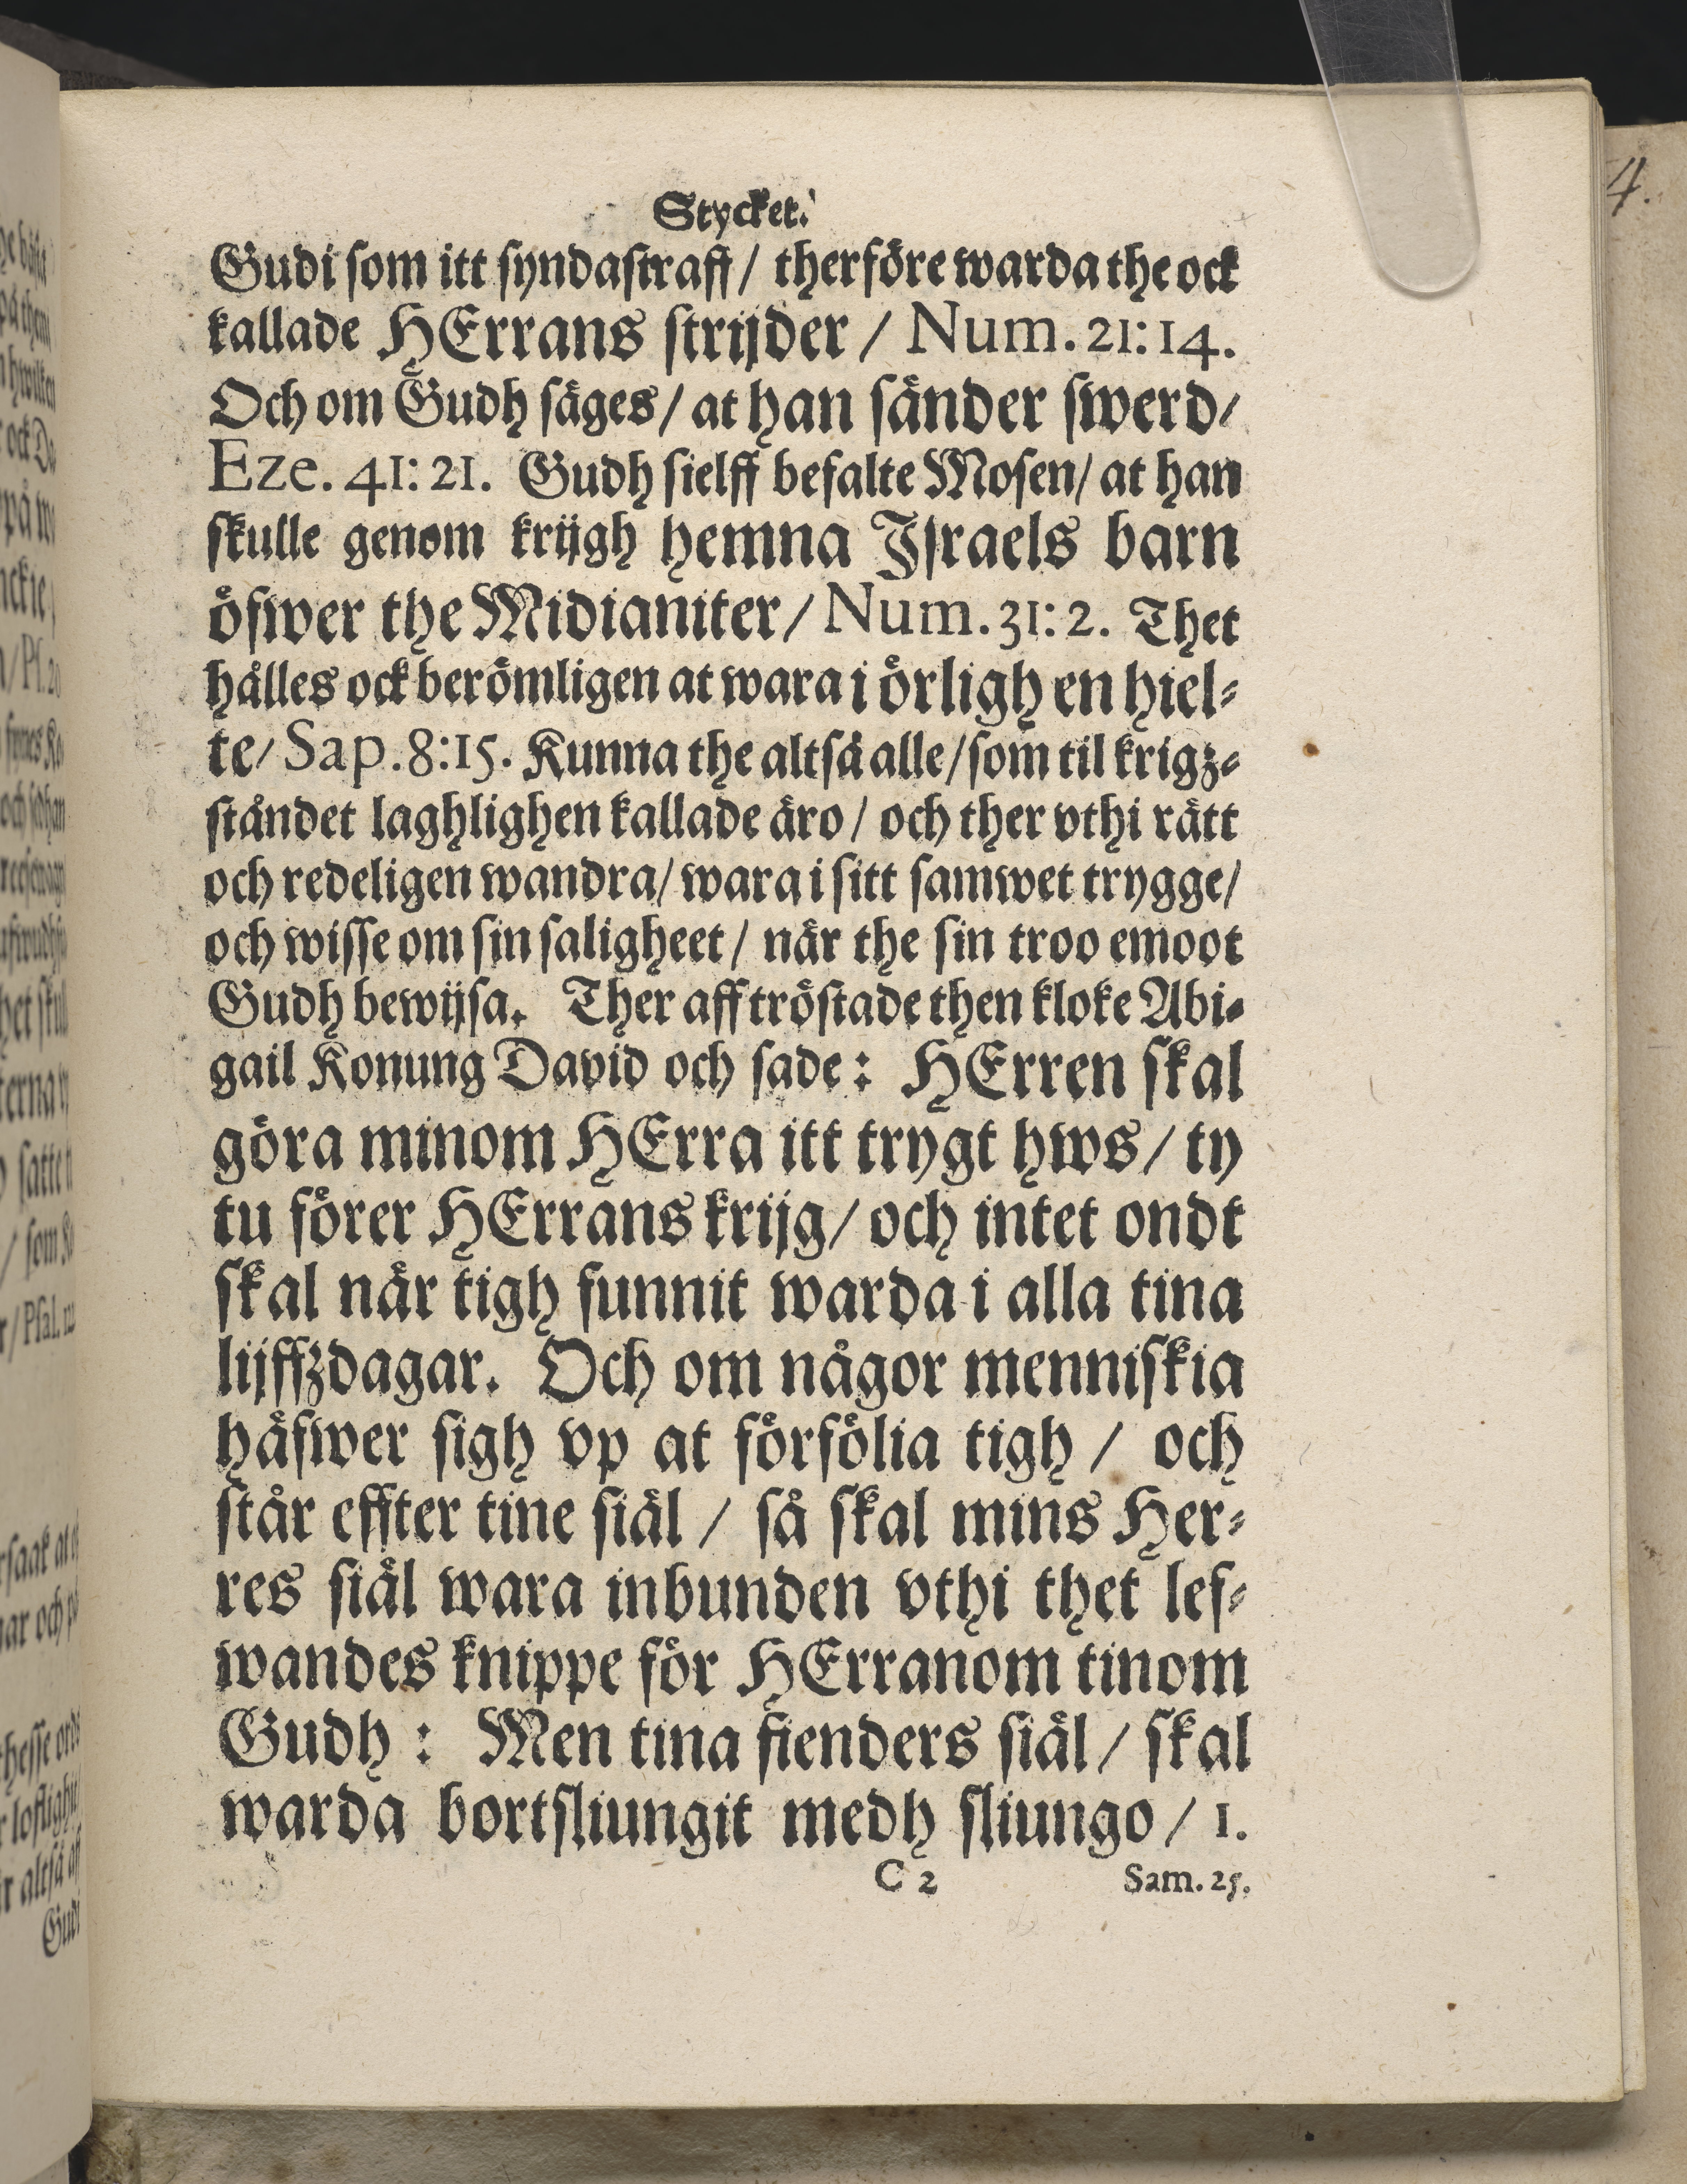 Stycket.
Gudi som itt syndastraff / therföre warda the ock
kallade HErrans strijder / Num. 21: 14.
Och om Gudh säges / at han sänder swerd /
Eze. 41: 21. Gudh sielff befalte Mosen / at han
skulle genom krijgh hemna Jsraels barn
öfwer the Midianiter / Num. 31: 2. Thet
hålles ock berömligen at wara i örligh en hiel-
te / Sap. 8:15. Kunna the altså alle / som til krigz-
ståndet laghlighen kallade äro / och ther vthi rätt
och redeligen wandra / wara i sitt samwet trygge /
och wisse om sin saligheet / när the sin troo emoot
Gudh bewijsa. Ther aff tröstade then kloke Abi-
gail Konung David och sade: HErren skal
göra minom HErra itt trygt hws / ty
tu förer HErrans krijg / och intet ondt
skal när tigh funnit warda i alla tina
lijffzdagar. Och om någor menniskia
häfwer sigh vp at förfölia tigh / och
står effter tine siäl / så skal mins Her-
res siäl wara inbunden vthi thet lef-
wandes knippe för HErranom tinom
Gudh : Men tina fienders siäl / skal
warda bortsliungit medh sliungo / 1.
C 2 Sam. 25.
4.